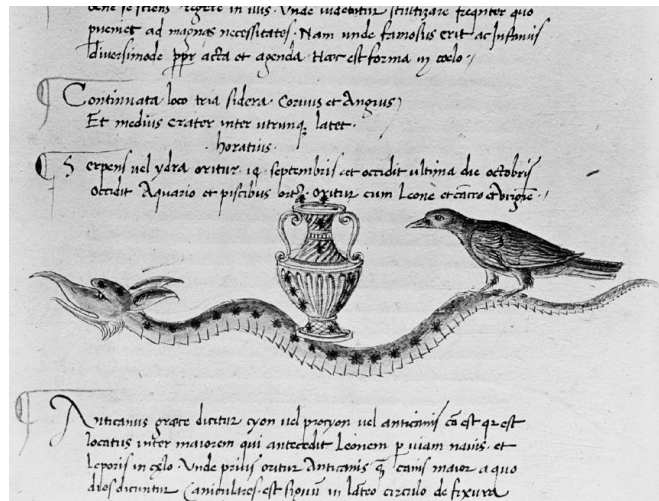 bene se sciens regere in illis. Unde videtur stultizare freqnter quo
pveniet ad magnas necessitates. Nam unde famosus erit ac Infamis
diversimode ppr acta et agenda. Hæc est forma in cœlo.
Continuata loco tria sidera Corvus et Angius
Et medius crater inter utrunq latet.
horatius.
Serpens vel ydra oritur 19 septembris et occidit ultima die octobris
occidit Aquario et piscibus oritur cum Leone et cacro et
Anticanus græce dicitur cyon vel procyon vel anticanis est qr est
locatus inter maiorem qui antecedit Leonem p viam navis. et
leporis in celo. Unde prius oritur Anticanis canis maior a quo
dies dicuntur caniculares. est signum in circulo de fixura